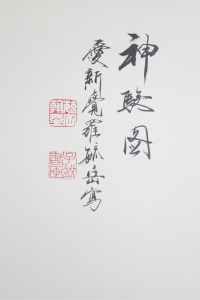 神駿图
愛新覺羅毓岳寫